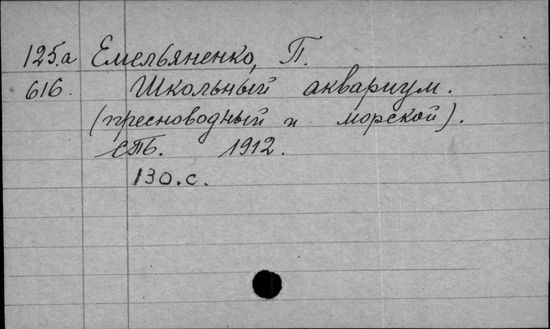 125.а Емельяненко, П.
616. Школьный аквариум.
(пресноводный и морской).
СПб. 1912.
130.с.